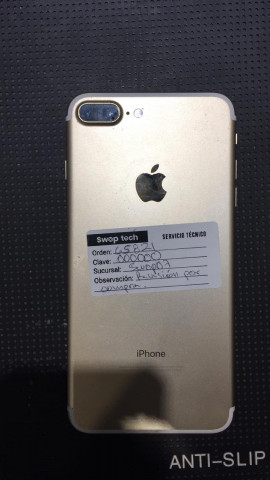 Swop tech SERVICIO TÉCNICO
Orden: 45821
Clave: 000000
Sucursal:
Observación: Revisión por
compra.
iPhone
ANTI-SLIP